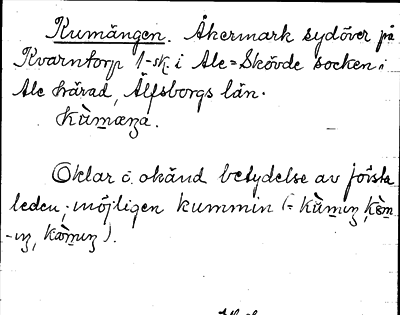 Kumängen. Åkermark sydöver på
Kvarntorp 1-sk. i Ale=Skövde socken i
Ale härad, Älfsborgs län.
Kùmæŋa.
Oklar o. okänd betydelse av första
leden; möjligen kummin (= Kùmıŋ, Kòm
-ıŋ, Kòmıŋ).